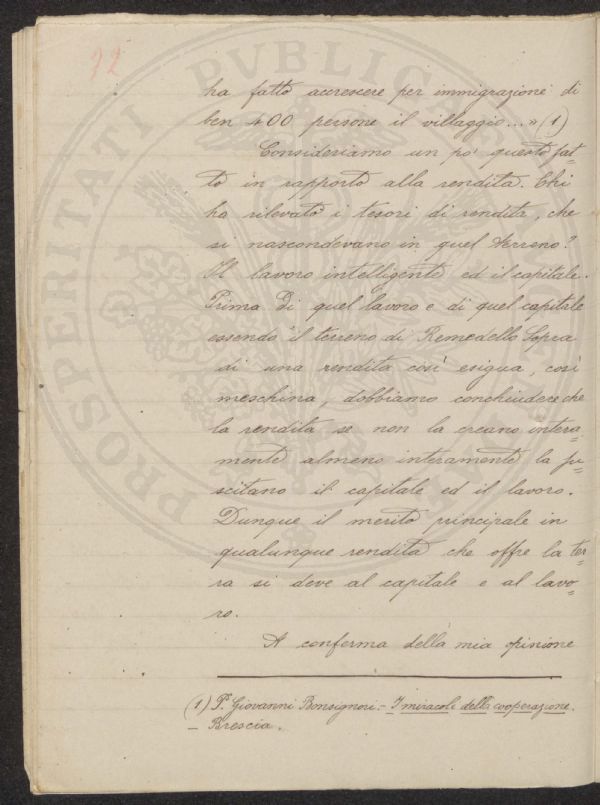 92
ha fatto accrescere per immigrazione di
ben 400 persone il villaggio...» (1)
Consideriamo un po' questo fat=
to in rapporto alla rendita. Chi
ha rilevato i tesori di rendita, che
si nascondevano in quel terreno?
Il lavoro intelligente ed il capitale.
Prima di quel lavoro e di quel capitale
essendo il terreno di Remedello Sopra
di una rendita così esigua, così
meschina, dobbiamo conchiudere che
la rendita se non la creano intera=
mente almeno interamente la su=
scitano il capitale ed il lavoro.
Dunque il merito principale in
qualunque rendita che offre la ter=
ra si deve al capitale e al lavo=
ro.
A conferma della mia opinione
(1) P. Giovanni Bonsignori.- I miracoli della cooperazione.
- Brescia.
PROSPERITATI PVBLICAE